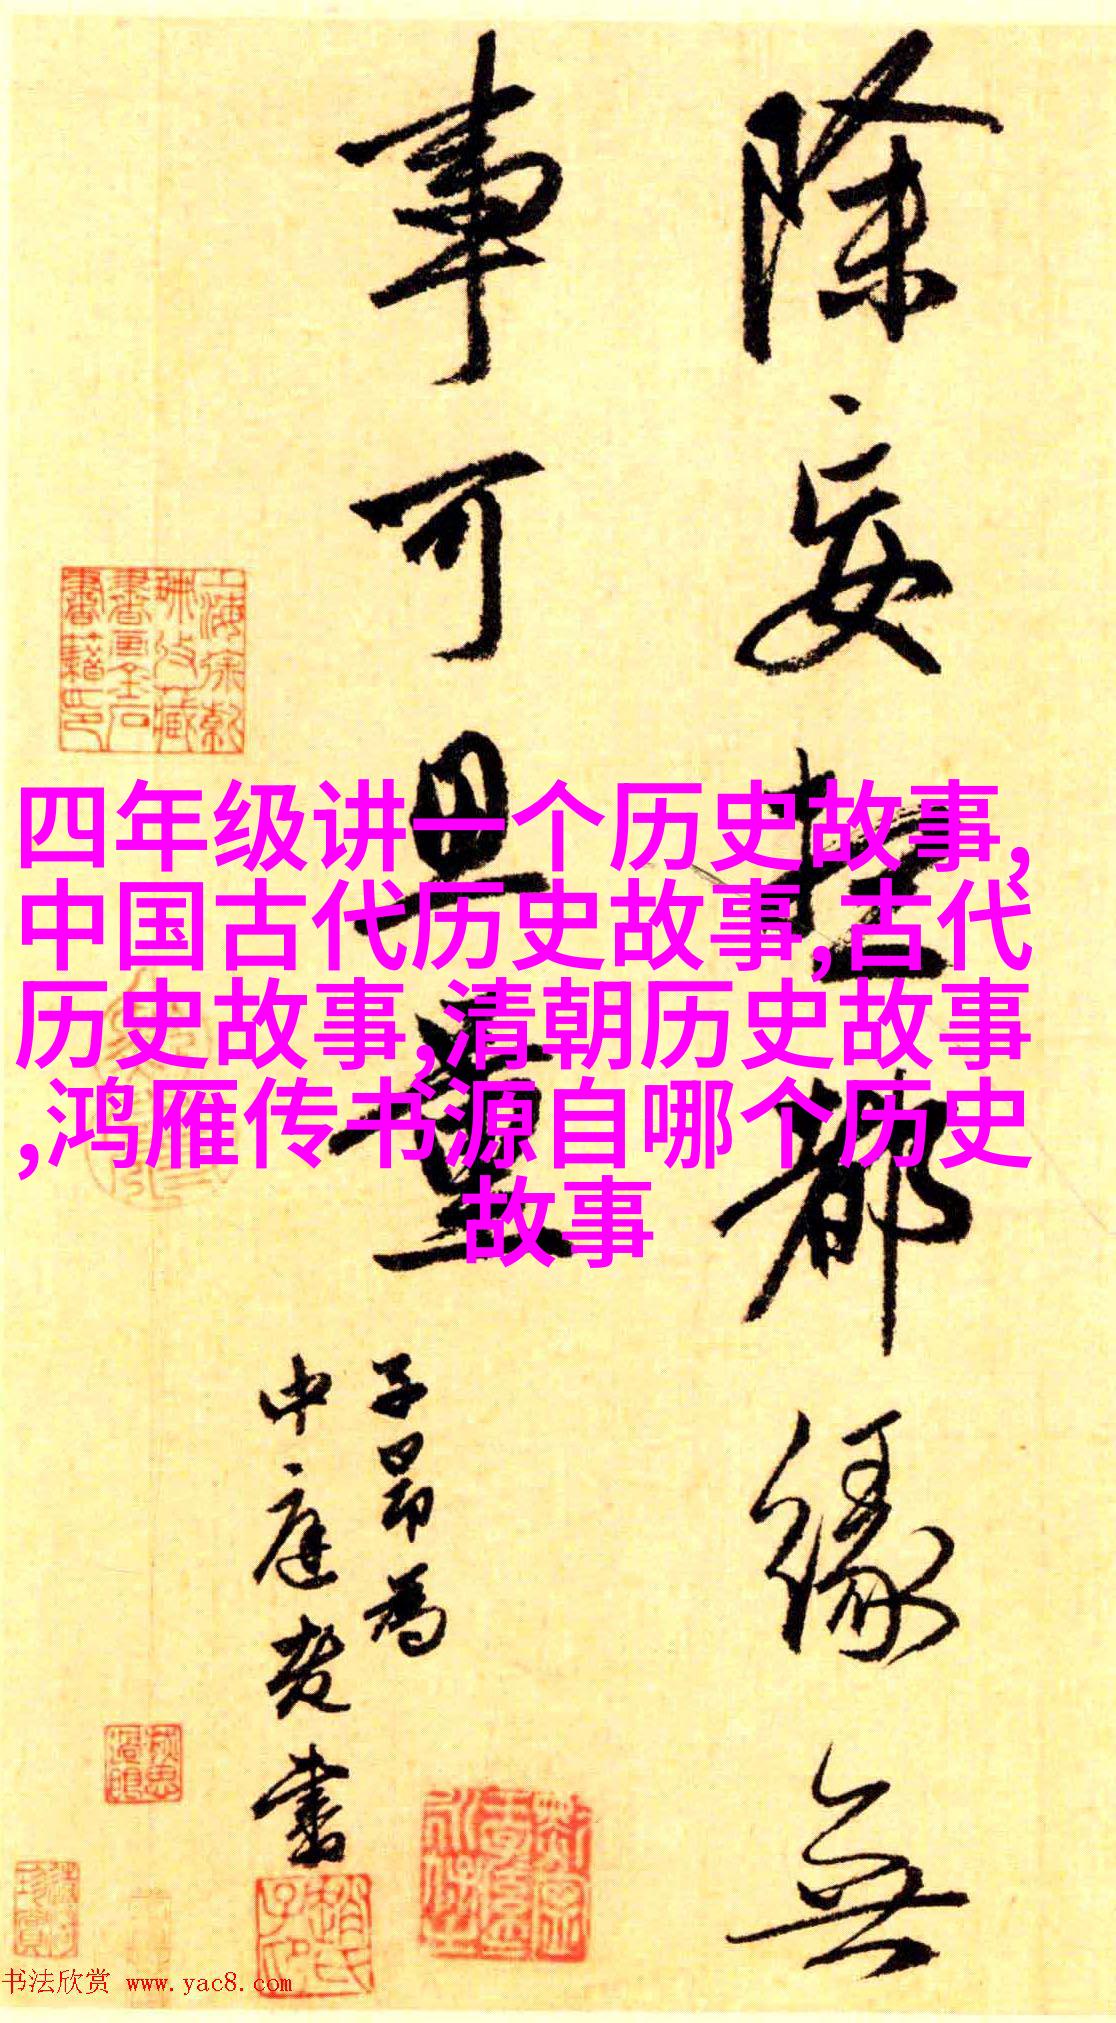 除妄摧都缘無
事可思量
子昂為
中庭老書
四年级讲一个历史故事,
中国古代历史故事,古代
历史故事,清朝历史故事
,鸿雁传书源自哪个历史
故事
趙氏子昂
书法欣赏 www.yac8.com